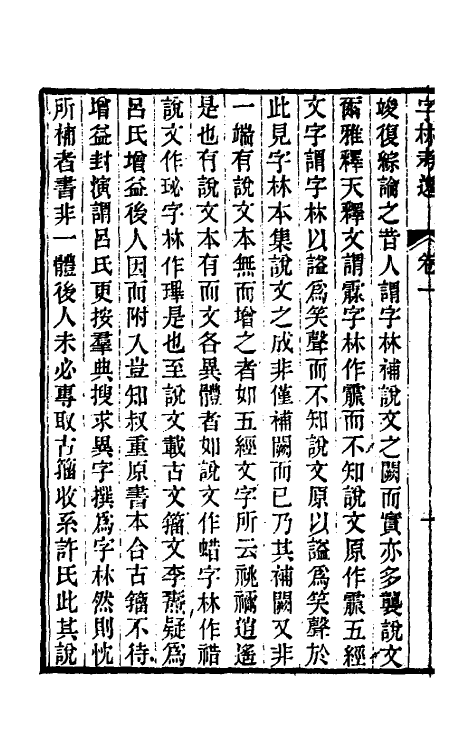 字林考逸 卷一 一
竣復綜論之昔人謂字林補說文之闕而實亦多襲說文
爾雅釋天釋文謂霢字林作霡而不知說文原作霡五經
文字謂字林以謚爲笑聲而不知說文原以謚爲笑聲於
此見字林本集說文之成非僅補闕而已乃其補闕又非
一端有說文本無而增之者如五經文字所云祧禰逍遙
是也有說文本有而文各異體者如說文作蜡字林作䄍
說文作珌字林作㻫是也至說文載古文籀文李燾疑爲
呂氏增益後人因而附入豈知叔重原書本合古籀不待
增益封演謂呂氏更按羣典搜求異字撰爲字林然則忱
所補者書非一體後人未必專取古籀收系許氏此其說